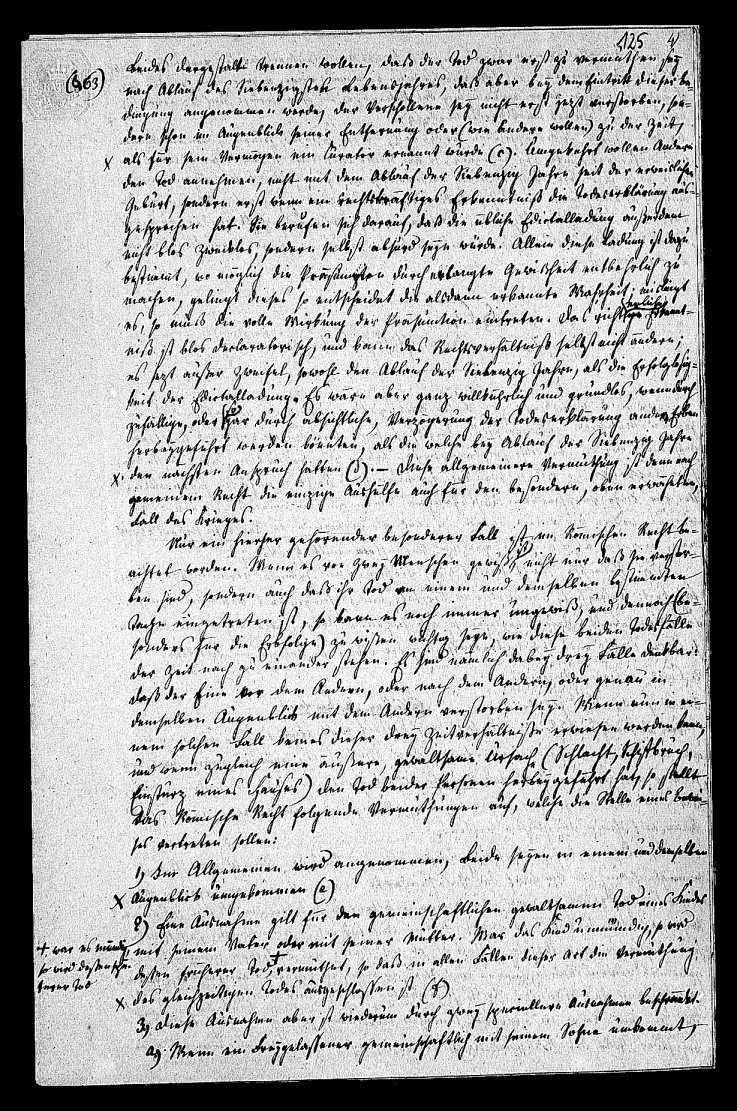 125 4
(§63)
beides dergestalt trennen wollen, daß der Tod zwar erst zu vermuthen sey
nach Ablauf des Siebenzigsten Lebensjahres, daß aber bey dem Eintritt dieser Be-
dingung angenommen werde, der Verschollene sey nicht erst jetzt verstorben, son-
dern schon im Augenblick seiner Entfernung oder (wie Andere wollen) zu der Zeit,
x als für sein Vermögen ein Curator ernannt wurde (c). Umgekehrt wollen Andere
den Tod annehmen, nicht mit dem Ablauf der Siebenzig Jahre seit der erweislichen
Geburt, sondern erst wenn ein rechtskräftiges Erkenntniß die Todeserklärung aus-
gesprochen hat. Sie berufen sich darauf, daß die übliche Edictalladung außerdem
nicht blos zwecklos, sondern selbst absurd seyn würde. Allein diese Ladung ist dazu
bestimmt, wo möglich die Präsumtion durch erlangte Gewißheit entbehrlich zu
machen, gelingt dieses so entscheidet die alsdann erkannte Wahrheit; mislingt
es, so muß die volle Wirkung der Präsumtion eintreten. Das richterliche Erkennt-
niß ist blos declaratorisch, und kann das Rechtsverhältniß selbst nicht ändern;
es setzt außer Zweifel, sowohl den Ablauf der Siebenzig Jahre, als die Erfolglosig-
keit der Edictalladung. Es wäre aber ganz willkührlich und grundlos, wenn durch
zufällige, oder gar durch absichtliche, Verzögerung der Todeserklärung andere Erben
herbeygeführt werden könnten, als die welche bey Ablauf der Siebenzig Jahre
x. den nächsten Anspruch hatten (d). — Diese allgemeinere Vermuthung ist denn nach
gemeinem Recht die einzige Aushülfe auch für den besondern, oben erwähnten,
Fall des Krieges.
Nur ein hierher gehörender besonderer Fall ist im Römischen Recht be-
achtet worden. Wenn es von zwey Menschen gewiß ist, nicht nur daß sie verstor-
ben sind, sondern auch daß ihr Tod an einem und demselben bestimmten
Tage eingetreten ist, so kann es noch immer ungewiß, und dennoch (be-
sonders für die Erbfolge) zu wissen wichtig seyn, wie diese beiden Todesfälle
der Zeit nach zu einander stehen. Es sind nämlich dabey drey Fälle denkbar:
daß der Eine vor dem Andern, oder nach dem Andern, oder genau in
demselben Augenblick mit dem Andern verstorben sey. Wenn nun in ei-
nem solchen Fall keines dieser drey Zeitverhältnisse erwiesen werden kann,
und wenn zugleich eine äußere, gewaltsame Ursach (Schlacht, Schiffbruch,
Einsturz eines Hauses) den Tod beider Personen herbeygeführt hat, so stellt
das Römische Recht folgende Vermuthungen auf, welche die Stelle eines Bewei-
ses vertreten sollen:
1) Im Allgemeinen wird angenommen, Beide seyen in einem und demselben
x Augenblick umgekommen (e)
2) Eine Ausnahme gilt für den gemeinschaftlichen gewaltsamen Tod eines Kindes
mit seinem Vater oder mit seiner Mutter. War das Kind unmündig, so wird
dessen früherer Tod,+ vermuthet, so daß in allen Fällen dieser Art die Vermuthung
+ war es mündig
so wird dessen spä-
terer Tod
x des gleichzeitigen Todes ausgeschlossen ist (f)
3) Diese Ausnahme aber ist wiederum durch zwey speciellere Ausnahmen beschränkt.
a) Wenn ein Freygelassener gemeinschaftlich mit seinem Sohne umkommt,